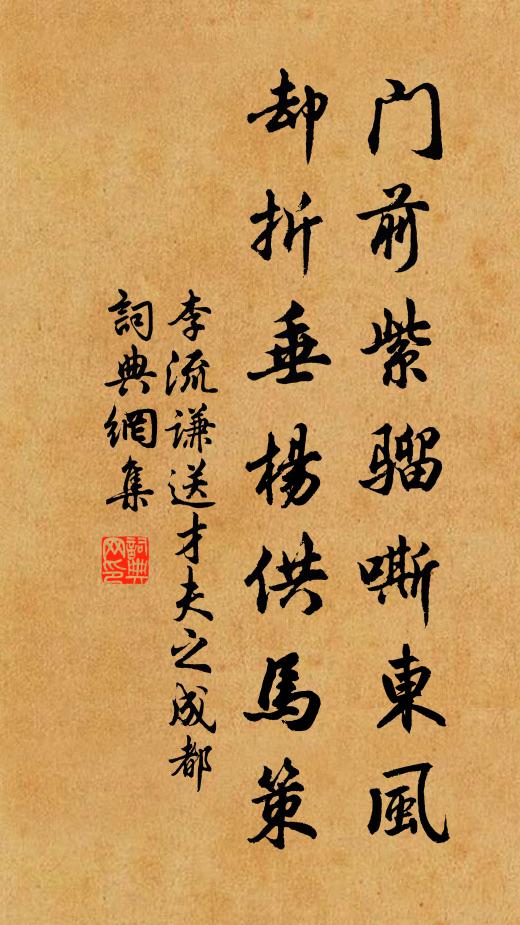 门前紫骝嘶東風
却折垂楊供馬策
李流谦送才夫之成都
詞典網集
詞典网印